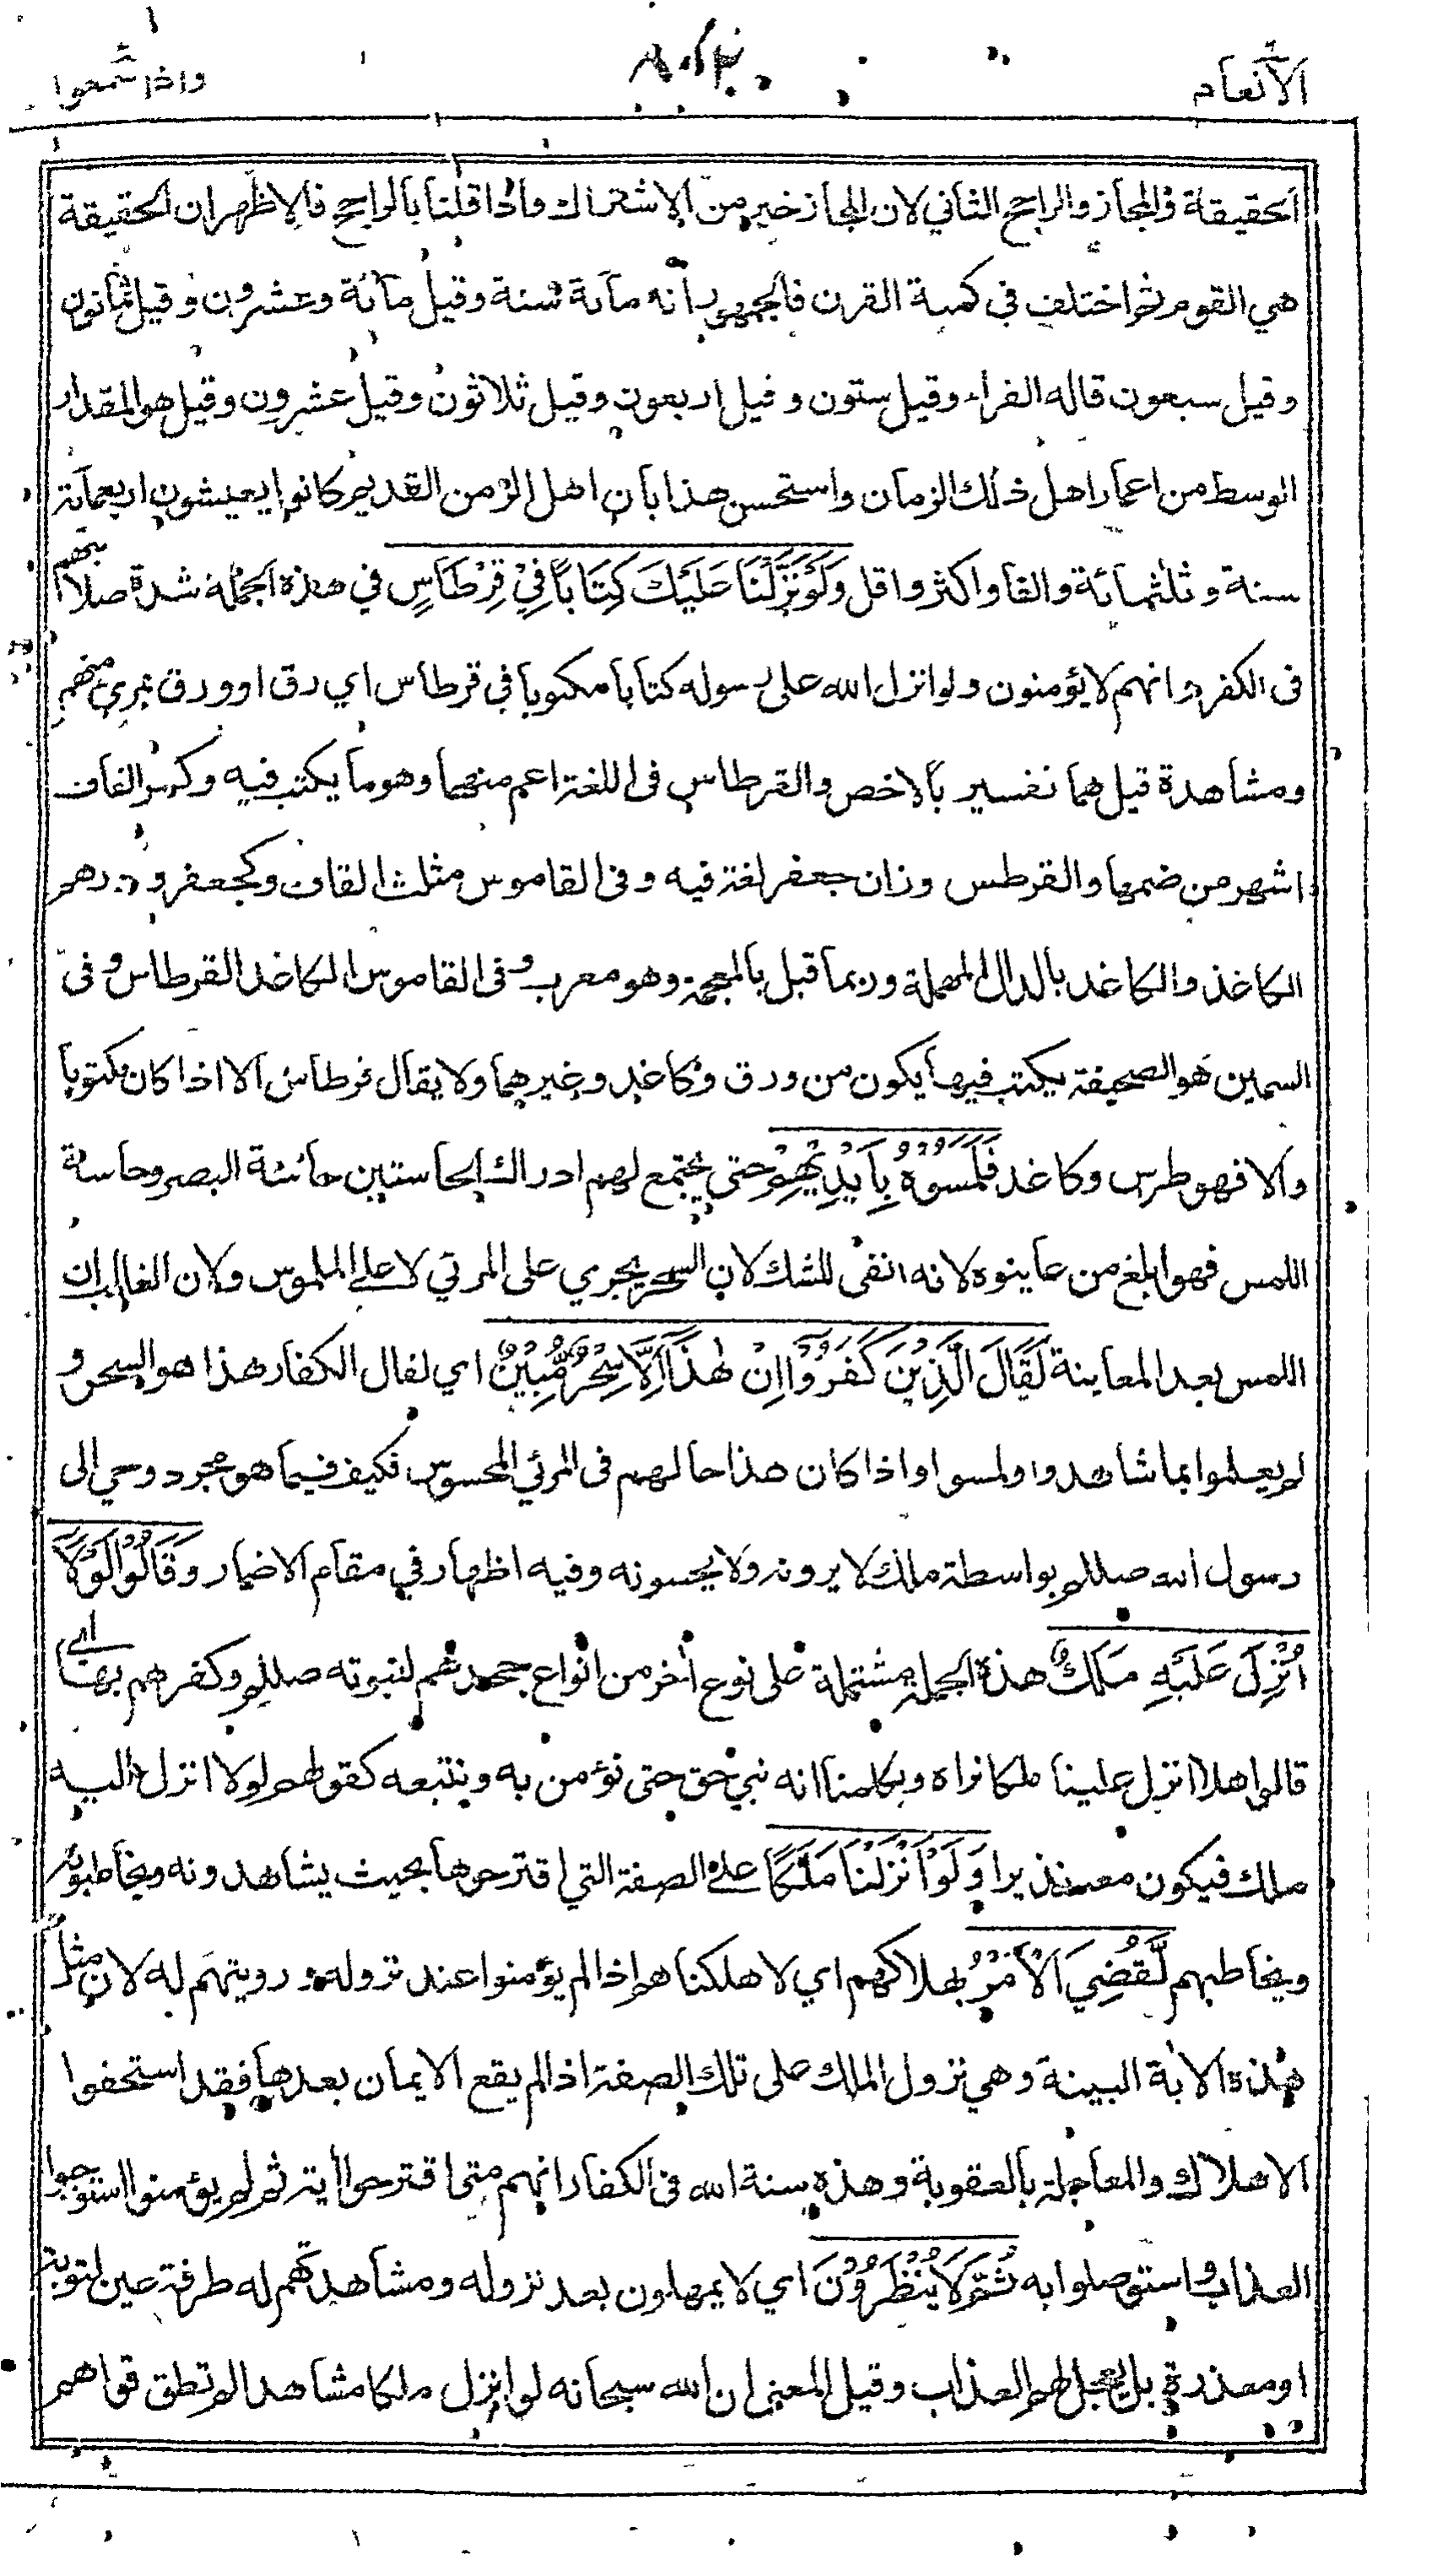 الأنعام
واذا سمعوا
الحقيقة والمجاز والراجح الثاني لان المجاز خير من الاشتراك واذا قلنا بالراجح فالاظهر ان الحقيقة
هي القوم ثم اختلف في كمية القرن فالجمهور أنه مأية سنة وقيل مائة وعشرون وقيل ثمانون
وقيل سبعون قاله الفراء وقيل ستون وقيل اربعون وقيل ثلاثون وقيل عشرون وقيل هو المقدار
الوسط من اعمار اهل ذلك الزمان واستحسن هذا بأن اهل الزمن القديم كانوا يعيشون اربعمأية
سنة وثلثمائة والفا واكثر واقل وَلَوْ نَزَّلْنَا عَلَيْكَ كِتَابًا فِيْ قِرْطَاسٍ في هذه الجملة شدة صلابتهم
فى الكفر وانهم لا يؤمنون ولو انزل الله على رسوله كتابا مكتوبا في قرطاس اي رق او ورق بمرئ منهم
ومشاهدة قيل هما تفسير بالاخص والقرطاس فى اللغة اعم منهما وهو ما يكتب فيه وكسر القاف
اشهر من ضمها والقرطس وزان جعفر لغة فيه وفى القاموس مثلث القاف وكجعفر ودرهم
الكاغذ والكاغد بالدال المهملة وربما قيل بالمعجمة وهو معرب وفى القاموس الكاغد القرطاس وفى
السمين هو الصحيفة يكتب فيها يكون من ورق وكاغد وغيرهما ولا يقال قرطاس الا اذا كان مكتوبا
والا فهو طرس وكاغد فَلَمَسُوْهُ بِأَيْدِيْهِمْ حتى يجتمع لهم ادراك الحاستين حاسة البصر وحاسة
اللمس فهو ابلغ من عاينوه لانه انفى للشك لان السحر يجري على المرئي لا على الملموس ولان الغالب ان
اللمس بعد المعاينة لَقَالَ الَّذِيْنَ كَفَرُوْا اِنْ هٰذَا اِلَّا سِحْرٌ مُّبِيْنٌ اي لقال الكفار هذا هو السحر و
لم يعلموا بما شاهدوا ولمسوا واذا كان هذا حالهم فى المرئي المحسوس فكيف فيما هو مجرد وحي الى
رسول الله صللم بواسطة ملك لا يرونه ولا يحسونه وفيه اظهار في مقام الاضمار وَقَالُوْا لَوْلَا
اُنْزِلَ عَلَيْهِ مَلَكٌ هذه الجملة مشتملة على نوع أخر من انواع جحدهم لنبوته صللم وكفرهم بها اي
قالوا هلا انزل علينا ملكا نراه ويكلمنا انه نبي حق حتى نؤمن به ونتبعه كقولهم لولا انزل اليه
ملك فيكون معه نذيرا وَلَوْ أَنْزَلْنَا مَلَكًا على الصفة التي اقترحوها بحيث يشاهدونه ويخاطبونه
ويخاطبهم لَّقُضِيَ الْأَمْرُ بهلاكهم اي لاهلكناهم اذا لم يؤمنوا عند نزوله ورويتهم له لان مثل
هذه الأية البينة وهي نزول الملك على تلك الصفة اذا لم يقع الايمان بعدها فقد استحقوا
الاهلاك والمعاجلة بالعقوبة وهذه سنة الله فى الكفار انهم متى اقترحوا أية ثم لم يؤمنوا استوجبوا
العذاب واستوصلوا به ثُمَّ لَا يُنْظَرُوْنَ اي لا يمهلون بعد نزوله ومشاهدتهم له طرفة عين لتوبة
او معذرة بل يعجل لهم العذاب وقيل المعنى ان الله سبحانه لو انزل ملكا مشاهدا لم تطق قواهم